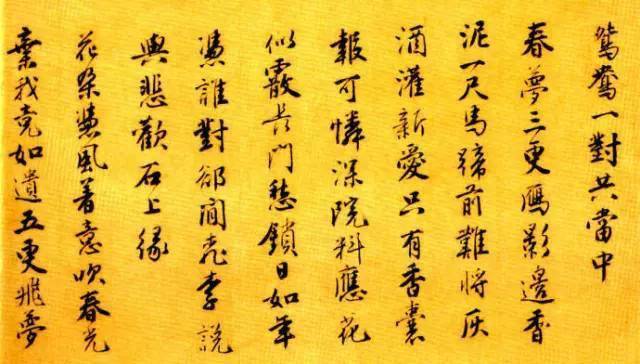 鴛鴦一對共當中
春夢三更雁影邊香
泥一尺馬蹄前難將灰
酒灌新愛只有香囊
報可憐深院料應花
似霰長門愁鎖日如年
憑誰對卻閒桃李說
與悲歡石上緣
花朶憑風着意吹春光
棄我竟如遺五更飛夢